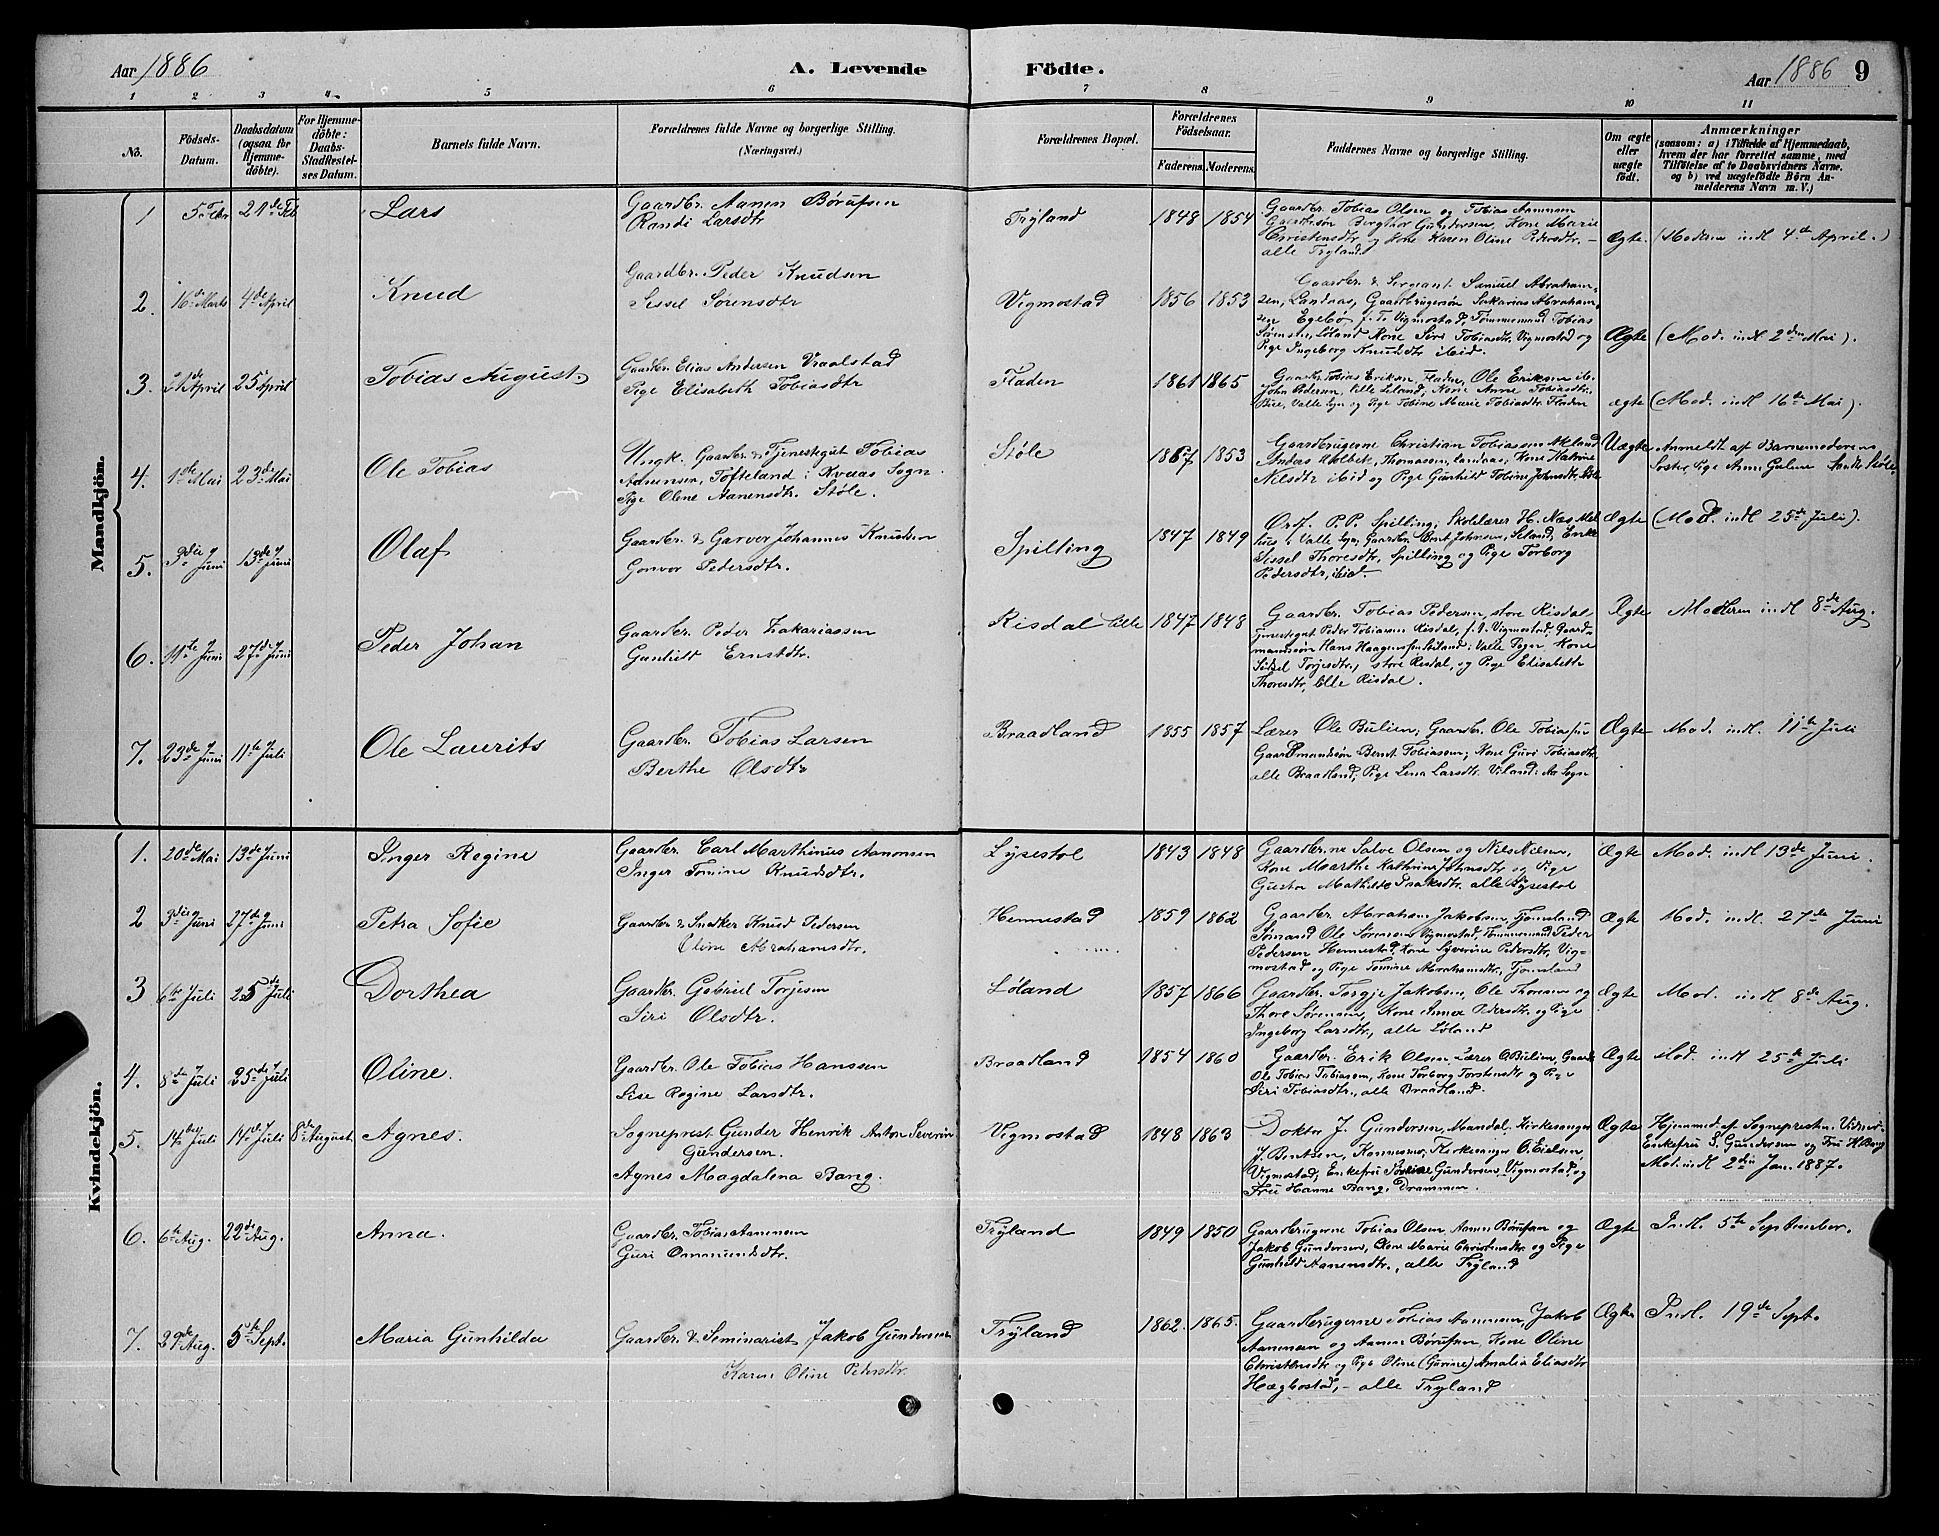 Aar 1886
A. Levende
Födte.
Aar 1886 9
1 2 3 4 5 6 7 8 9 10 11
No.
Födsels-
Datum.
Daabsdatum
(ogsaa for
Hjemme-
döbte).
For Hjemme-
döbte:
Daabs-
Stadfæstel-
ses Datum.
Barnets fulde Navn.
Forældrenes fulde Navne og borgerlige Stilling.
(Næringsvei.)
Forældrenes Bopæl.
Forældrenes
Födselsaar.
Faderens. Moderens.
Faddernes Navne og borgerlige Stilling.
Om ægte
eller
uægte
födt.
Anmærkninger
(saasom: a) i Tilfælde af Hjemmedaab,
hvem der har forrettet samme, med
Tilföielse af to Daabsvidners Navne.
og b) ved uægtefödte Börn An-
melderens Navn m. V.)
Mandkjön.
1 5 Febr 21de Feb Lars
Gaardbr. Aanen Börufsen
Randi Larsdtr
Tryland 1848 1854
Gaardbr. Tobias Olsen og Tobias Aanensen
Gaardbrsøn Bergthor Gundersen, Kone Marie
Christensdtr og Kone Karen Oline Pedersdtr. –
alle Tryland
Ægte. (Moderen indl 4de April.)
2. 16de Marts 4de April Knud
Gaardbr. Peder Knudsen
Sissel Sørensdtr
Vigmostad 1856 1853
Gaardbr & Sergeant Samuel Abraham-
sen, Landaas, Gaardbrugersøn Sakarias Abraham-
sen Egebø, f. T. Vigmostad, Tømmermand Tobias
Sørensen, Löland Kone Siri Tobiasdtr, Vigmostad og
Pige Ingeborg Knudsdtr ibid.
Ægte (Mod. indl 2den Mai).
3. 21de April 25 April Tobias August.
Gaardbr. Elias Andersen Vraalstad
Pige Elisabeth Tobiasdtr
Fladen 1861 1865
Gaardbr. Tobias Eriksen, Fladen, Ole Eriksen ib.
John Pedersen, lille Leland, Kone Anne Tobiasdtr.
Bue, Valle Sgn og Pige Tobine Marie Tobiasdtr. Fladen
ægte (Mod. indl 16de Mai).
4. 1de Mai 23de Mai Ole Tobias
Ungk. Gaardbr. & Tjenestegut Tobias
Adnensen, Tofteland i Kvaas Sogn.
Pige Oline Aanensdtr. Støle.
Støle 1867 1853
Gaardbrugerne Christian Tobiassen Akland
Andras Holbek, Thomassen, Landaas, Kone Katrine
Nilsdtr ibid og Pige Gunhild Tobine Johnsdtr, Støle
Uægte Anmeldt af Barnemoderens
Søster, Pige Anne Guline
5. 3die Juni 13de Juni Olaf
Gaardbr. & Garver Johannes Knudsen
Gonvor Pedersdtr.
Spilling 1847 1849
Ordf. P. P. Spilling, Skolelærer H. Næs Mel
hus, Valle Sgn, Gaardbr. Bent Johnsen, Leland, Enke
Sissel Thoresdtr, Spilling og Pige Torborg
Pedersdtr, ibid.
Ægte (Mod. indl 25de Juli).
6. 11te Juni 27de Juni Peder Johan
Gaardbr. Peder Zakariassen
Gunhild Ernstdtr.
Risdal lille 1847 1848
Gaardbr. Tobias Pedersen, store Risdal
Tjenestegut Peder Tobiassen Risdal, f. T. Vigmostad, Gaard-
mandssøn Hans Haagensen Leland i Valle Sogn, Kone
Sidsel Torjesdtr, store Risdal, og Pige Elisabeth
Thoresdtr, lille Risdal.
Ægte Moderen indl 8de Aug.
7. 23de Juni 11te Juli Ole Laurits
Gaardbr. Tobias Larsen
Berthe Olsdtr
Braadland 1855 1857
Lærer Ole Bulien; Gaardbr. Ole Tobiassen
Gaardmandssøn Bernt Tobiassen; Kone Guri Tobiasdtr
alle Braadland; Pige Lena Larsdtr.
Ægte Mod. indl. 11te Juli
Kvindekjön.
1. 20de Mai 13de Juni Inger Regine
Gaardbr. Carl Marthinus Aanonsen
Inger Tomine Knudsdtr.
Lysestøl 1843 1848
Gaardbr.ne Salve Olsen og Nils Nilsen,
Kone Maarthe Kathrine Johnsdtr og Pige
Gustva Mathilde Isaksdtr. alle Lysestøl
Ægte Mod. indl 13de Juni.
2 3die Juni 27de Juni Petra Sofie
Gaardbr & Snedker Knud Pedersen
Oline Abrahamsdtr.
Hennestad 1859 1862
Gaardbr. Abraham Jakobsen, Tjomsland
Sømand Ole Sørensen Vigmostad, Tømmermand Peder
Pedersen Hennestad, Kone Syverine Pedersdtr, Vig-
mostad og Pige Tomine Abrahamsdtr, Tjomsland
Ægte Mod. indl. 27de Juni
3 6te Juli 25de Juli Dorthea
Gaardbr. Gabriel Torjesen
Siri Olsdtr.
Løland 1857 1866
Gaardbr. Torgje Jakobsen, Ole Thoresen og
Thore Sørensen, Kone Anna Pedersdtr og Pige
Ingeborg Larsdtr, alle Løland
Ægte Mod. indl 8de Aug.
4. 8de Juli 25de Juli Oline.
Gaardbr. Ole Tobias Hanssen
Lise Regine Larsdtr.
Braadland 1854 1860
Gaardbr. Erik Olsen Lærer O Bulien, Gaardb
Ole Tobias Tobiassen, Kone Torborg Torstensdtr og Pige
Siri Tobiasdtr., alle Braadland.
Ægte Mod. indl 25de Juli
5. 14de Juli 14de Juli 8de August Agnes.
Sogneprest Gunder Henrik Anton Severin
Gundersen.
Agnes Magdalena Bang.
Vigmostad 1848 1863
Doktor J. Gundersen, Mandal, Kirkesanger
J. Bentsen, Konnesmo, Kirkesanger O. Eielsen,
Vigmostad, Enkefru Sørine Gundersen, Vigmostad, og
Fru Hanne Bang, Drammen.
Ægte Hjemmed af Sognepresten. Vidner:
Enkefru S. Gundersen og Fru H Bang
Mod. indl 2den Jan. 1887.
6. 6te Aug. 22de Aug. Anna.
Gaardbr. Tobias Aanensen
Guri Ommundsdtr.
Tryland 1849 1850
Gaardbrugerne Tobias Olsen, Aanen Børufsen og
Jakob Gundersen, Kone Marie Christensdtr og Pige
Gunhild Aanensdtr., alle Tryland
Ægte Indl. 5te September.
7. 29de Aug. 5te Sept. Maria Gunhilda
Gaardbr. & Seminarist Jakob Gundersen
Karen Oline Pedersdtr.
Tryland 1862. 1865.
Gaardbrugerne Tobias Aanensen, Jakob
Aanensen og Aanen Børufsen, Kone Oline
Christensdtr og Pige Oline (Gurine) Amalia Eliasdtr
Hægbostad, – alle Tryland
Ægte Indl. 19de Sept.